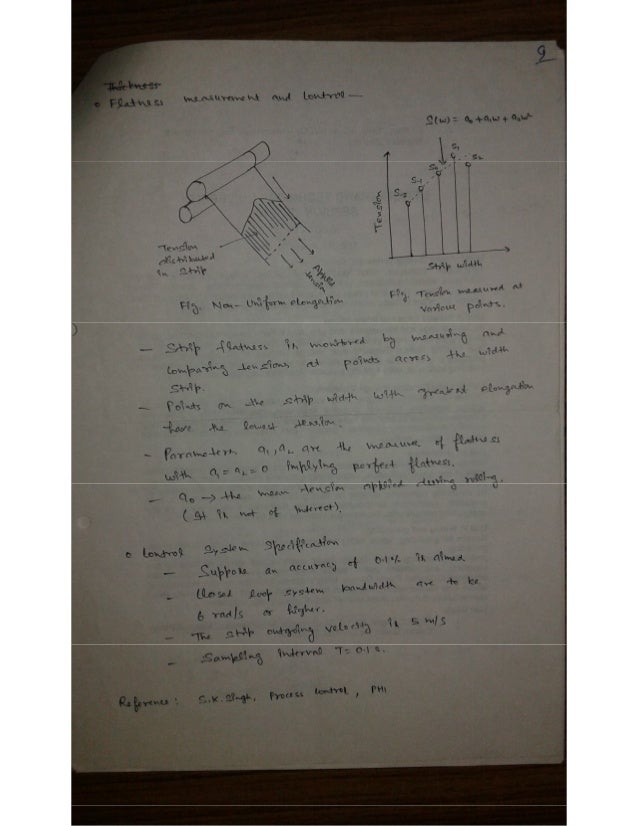 9
Thickness
o Flatness measurement and Control —
S(w) = a0 + a1w + a2w²
S1
S0
S2
S-1
S-2
Tension
Tension
distributed
in strip
Applied
tension
Strip width
Fig. Non-Uniform elongation
Fig. Tension measured at
various points.
— Strip flatness is monitored by measuring and
comparing tensions at points across the width
strip.
- Points on the strip width with greatest elongation
have the lowest tension.
- Parameters a1, a2 are the measure of flatness
with a1 = a2 = 0 implying perfect flatness.
- a0 → the mean tension applied during rolling.
(It is not of interest).
o Control System Specification
— Suppose an accuracy of 0.1% is aimed
- Closed loop system bandwidth are to be
6 rad/s or higher.
- The strip outgoing velocity is 5 m/s
- Sampling interval T = 0.1 s.
Reference: S.K. Singh, Process Control, PHI